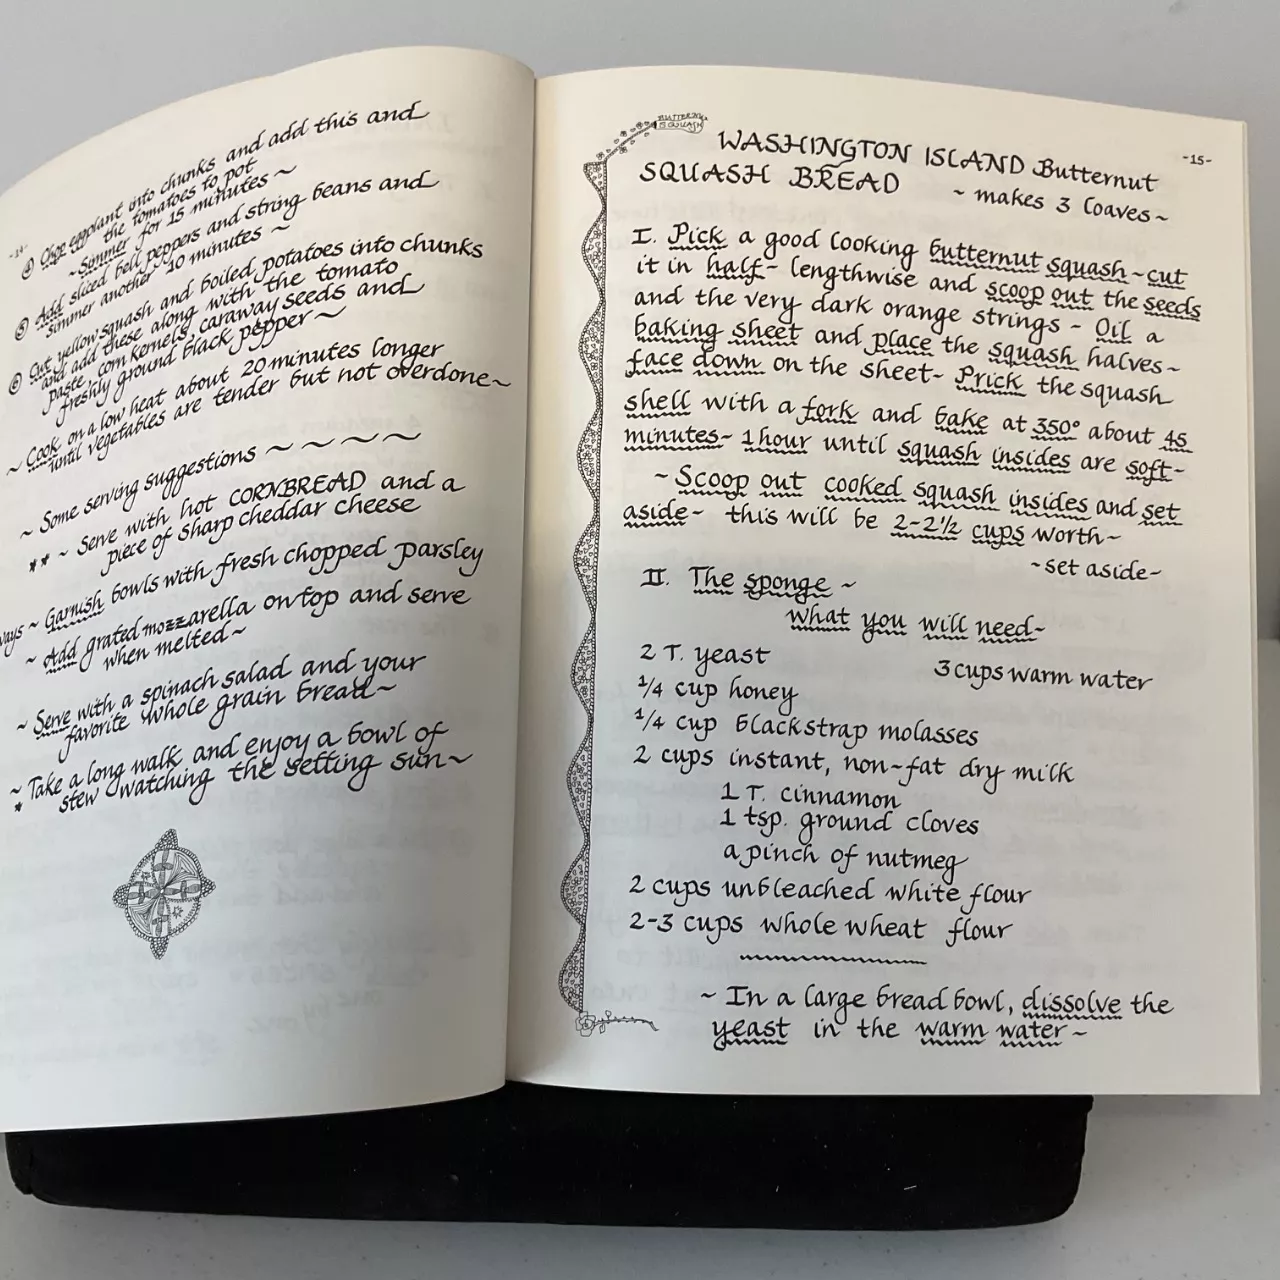 -14-
④ Chop eggplant into chunks and add this and
the tomatoes to pot
~ Simmer for 15 minutes ~
⑤ Add sliced bell peppers and string beans and
simmer another 10 minutes ~
⑥ Cut yellow squash and boiled potatoes into chunks
and add these along with the tomato
paste, corn kernels, caraway seeds and
freshly ground black pepper ~
~ Cook on a low heat about 20 minutes longer
until vegetables are tender but not overdone ~
~ Some serving suggestions ~ ~ ~ ~ ~
** ~ Serve with hot CORNBREAD and a
piece of sharp cheddar cheese
ways ~ Garnish bowls with fresh chopped parsley
~ Add grated mozzarella on top and serve
when melted ~
~ Serve with a spinach salad and your
favorite whole grain bread ~
~ Take a long walk and enjoy a bowl of
* stew watching the setting sun ~
BUTTERNUT
SQUASH
-15-
WASHINGTON ISLAND Butternut
SQUASH BREAD ~ makes 3 loaves ~
I. Pick a good looking butternut squash ~ cut
it in half - lengthwise and scoop out the seeds
and the very dark orange strings - Oil a
baking sheet and place the squash halves ~
face down on the sheet ~ Prick the squash
shell with a fork and bake at 350° about 45
minutes - 1 hour until squash insides are soft -
~ Scoop out cooked squash insides and set
aside ~ this will be 2-2½ cups worth ~
~ set aside ~
II. The sponge ~
what you will need ~
2 T. yeast 3 cups warm water
1/4 cup honey
1/4 cup blackstrap molasses
2 cups instant, non-fat dry milk
1 T. cinnamon
1 tsp. ground cloves
a pinch of nutmeg
2 cups unbleached white flour
2-3 cups whole wheat flour
~ In a large bread bowl, dissolve the
yeast in the warm water ~